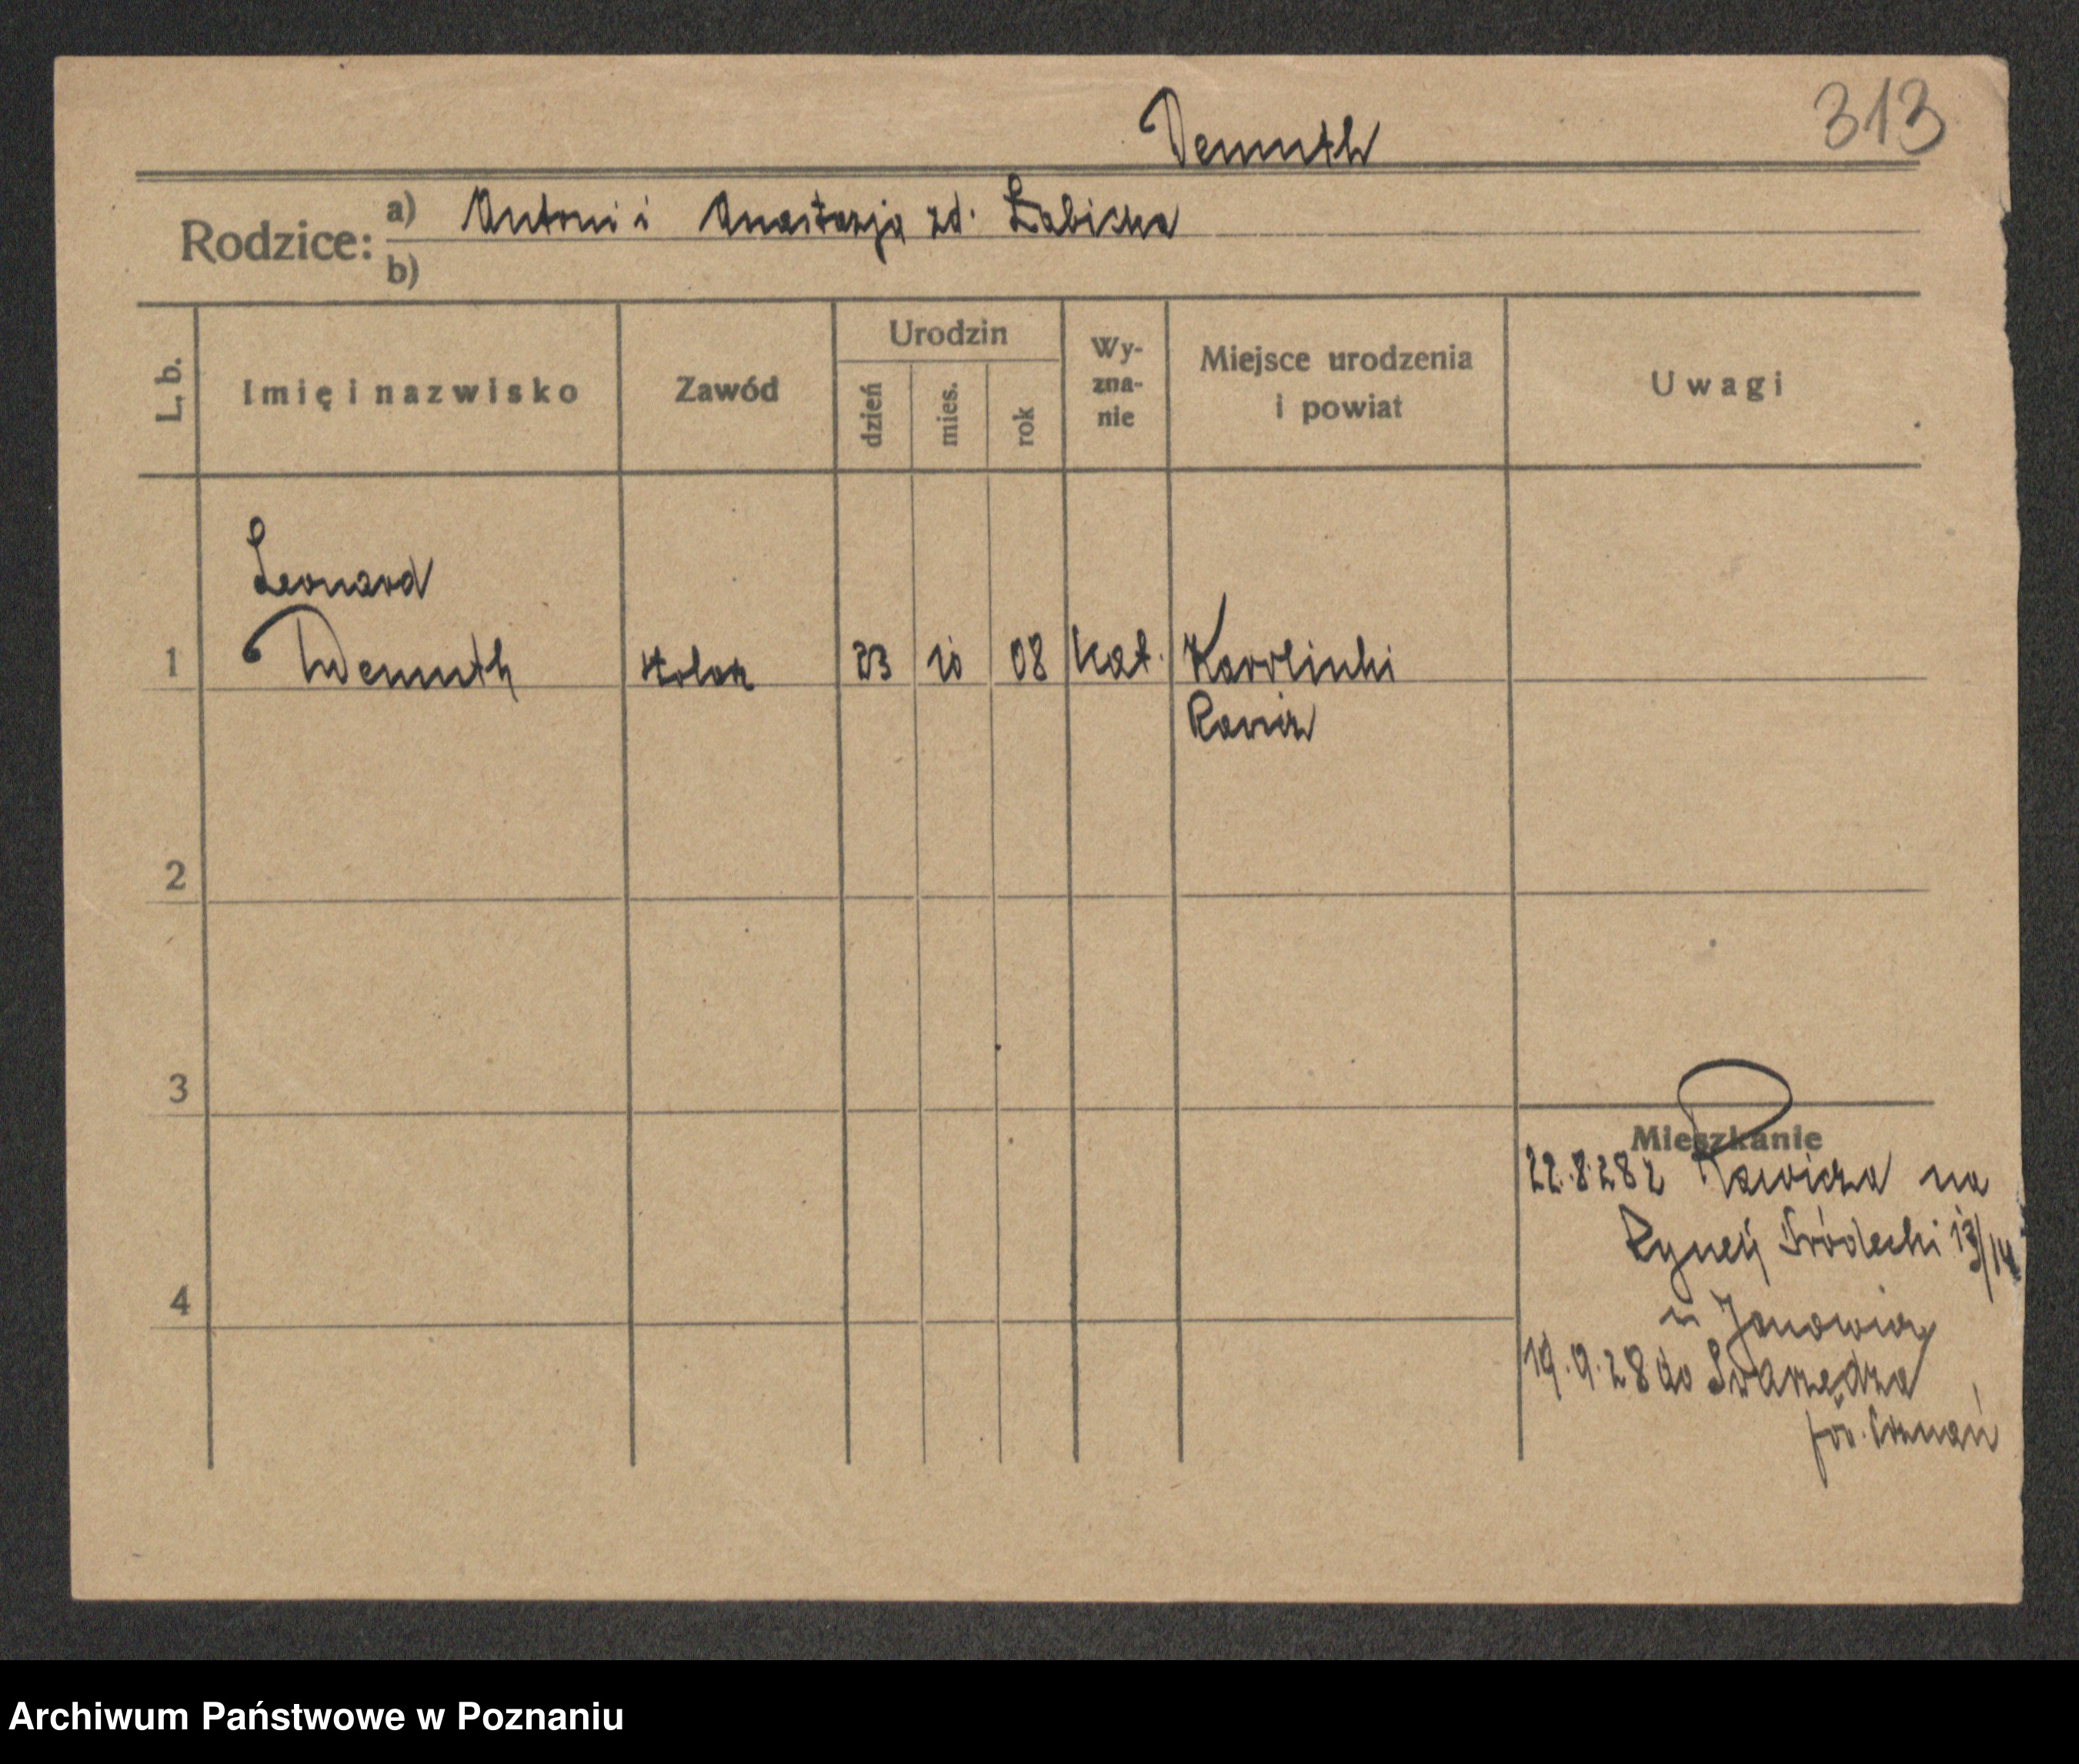 313
Demuth
Rodzice: a) Antoni i Anastazja zd. Łabicka
b)
L. b.
Imię i nazwisko
Zawód
Urodzin
dzień
mies.
rok
Wy-
zna-
nie
Miejsce urodzenia
i powiat
Uwagi
Leonard
1 Demuth stolarz 23 10 08 kat. Karolinki
Rawicz
2
3
4
Mieszkanie
22.8.28 z Rawicza na
Rynek Śródecki 13/14
u Janowicz
19.9.28 do Swarzędza
pow. Poznań
Archiwum Państwowe w Poznaniu